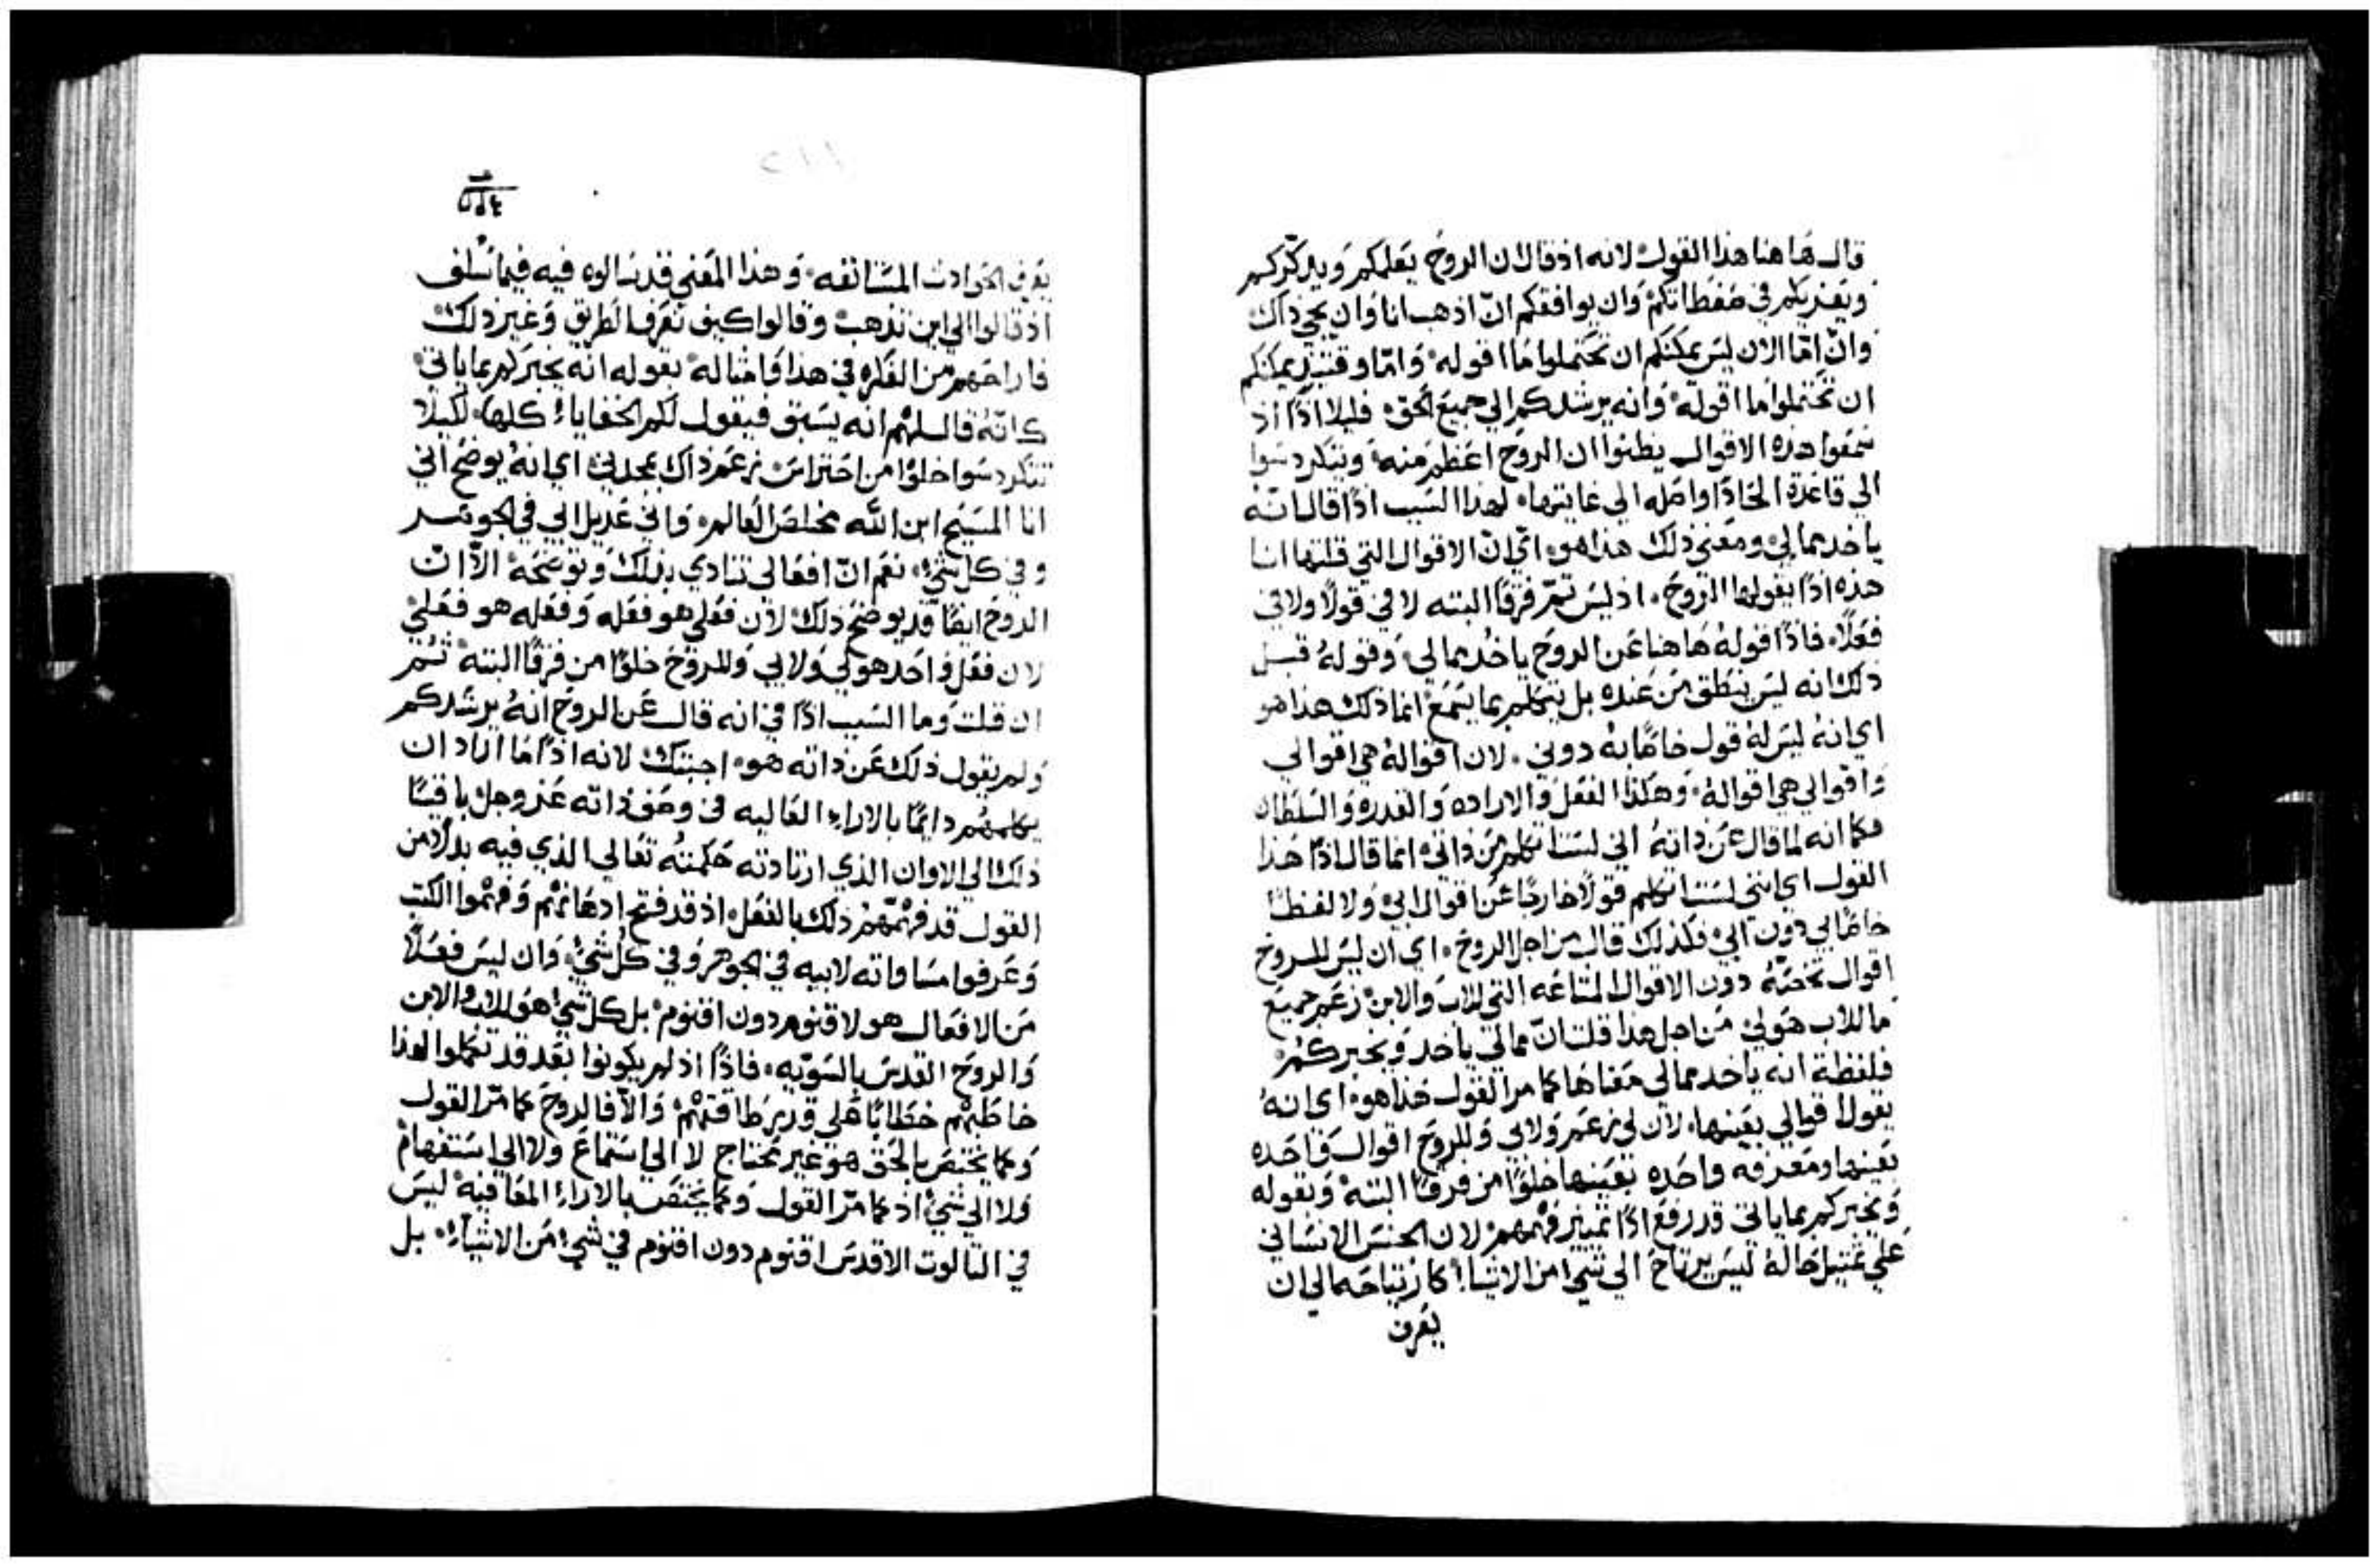 قال هاهنا هذا القول لانه اذ قال ان الروح يعلمكم ويذكركم
ويعزيكم في ضغطاتكم وان يوافقكم ان اذهب انا وان يجي ذاك
وان اما الان ليس يمكنكم ان تحتملوا ما اقوله واما وقتيذ يمكنكم
ان تحتملوا ما اقوله وانه يرشدكم الي جميع الحق فليلا اذا اذ
سمعوا هذه الاقوال يظنوا ان الروح اعظم منه ويتكردسوا
الي قاعدة الحاد اواصله الي غايتها لهذا السبب اذا قال انه
ياخد مما لي ومعني ذلك هذا هو اي ان الاقوال التي قلتها انا
هذه اذا يقولها الروح اذ ليس تم فرقا البته لا في قولا ولا في
فعلا فاذا قوله هاهنا عن الروح ياخد مما لي وقوله قبل
ذلك انه ليس ينطق من عنده بل يتكلم بما يسمع انما ذلك هذا هو
اي انه ليس له قول خاصا به دوني لان اقواله هي اقوالي
واقوالي هي اقواله وهكذا الفعل والاراده والقدره والسلطان
فكما انه لما قال عن ذاته اني لست اتكلم من ذاتي انما قال اذا هذا
القول اي انني لست اتكلم قولا خارجا عن اقوال ابي ولا لفظا
خاصا بي دون ابي فكذلك قال من اجل الروح اي ان ليس للروح
اقوال تخصه دون الاقوال المشاعه التي للاب والابن زعم جميع
ما للاب هو لي من اجل هذا قلت ان مما لي ياخد ويخبركم
فلفظة انه ياخد مما لي معناها كما مر القول هذا هو اي انه
يقول اقوالي بعينها لان لي زعم ولابي وللروح اقوال واحده
بعينها ومعرفه واحده بعينها خلوا من فرقا البته وبقوله
ويخبركم بما ياتي قد رفع اذا تمييز فهمهم لان الجنس الانساني
علي تمثيل حاله ليس يرتاح الي شي من الاشيا كارتياحه الي ان
يعرف
٥١٤
يعرف الحوادث المستانفه وهذا المعني قد سالوه فيه فيما سلف
اذ قالوا الي اين تذهب وقالوا كيف نعرف الطريق وغير ذلك
فاراحهم من الفكره في هذا وامثاله بقوله انه يخبركم بما ياتي
كانه قال لهم انه يسبق فيقول لكم الخفاياء كلها لكيلا
تتكردسوا خلوا من احتراس زعم ذاك يمجدني اي انه يوضح اني
انا المسيح ابن الله مخلص العالم واني عديل ابي في الجوهر
وفي كل شي نعم ان افعالي تنادي بذلك وتوضحه الا ان
الروح ايضا قد يوضح ذلك لان فعلي هو فعله وفعله هو فعلي
لان فعل واحد هو لي ولابي وللروح خلوا من فرقا البته ثم
ان قلت وما السبب اذا في انه قال عن الروح انه يرشدكم
ولم يقول ذلك عن ذاته هو اجبتك لانه اذا ما اراد ان
يكلمهم دايما بالاراء العاليه في وصف ذاته عز وجل باقيا
ذلك الي الاوان الذي ارتادته حكمته تعالي الذي فيه بدلا من
القول قد فهمهم ذلك بالفعل اذ قد فتح ادهانهم وفهموا الكتب
وعرفوا مساواته لابيه في الجوهر وفي كل شي وان ليس فعلا
من الافعال هو لاقنوم دون اقنوم بل كل شي هو للاب والابن
والروح القدس بالسويه فاذا اذ لم يكونوا بعد قد تعملوا لهذا
خاطبهم خطابا علي قدر طاقتهم والا فالروح كما مر القول
وكما يختص بالحق هو غير محتاج لا الي استماع ولا الي استفهام
ولا الي شي اذ كما مر القول وكما يختص بالاراء المعافيه ليس
في التالوت الاقدس اقنوم دون اقنوم في شي من الاشياء بل